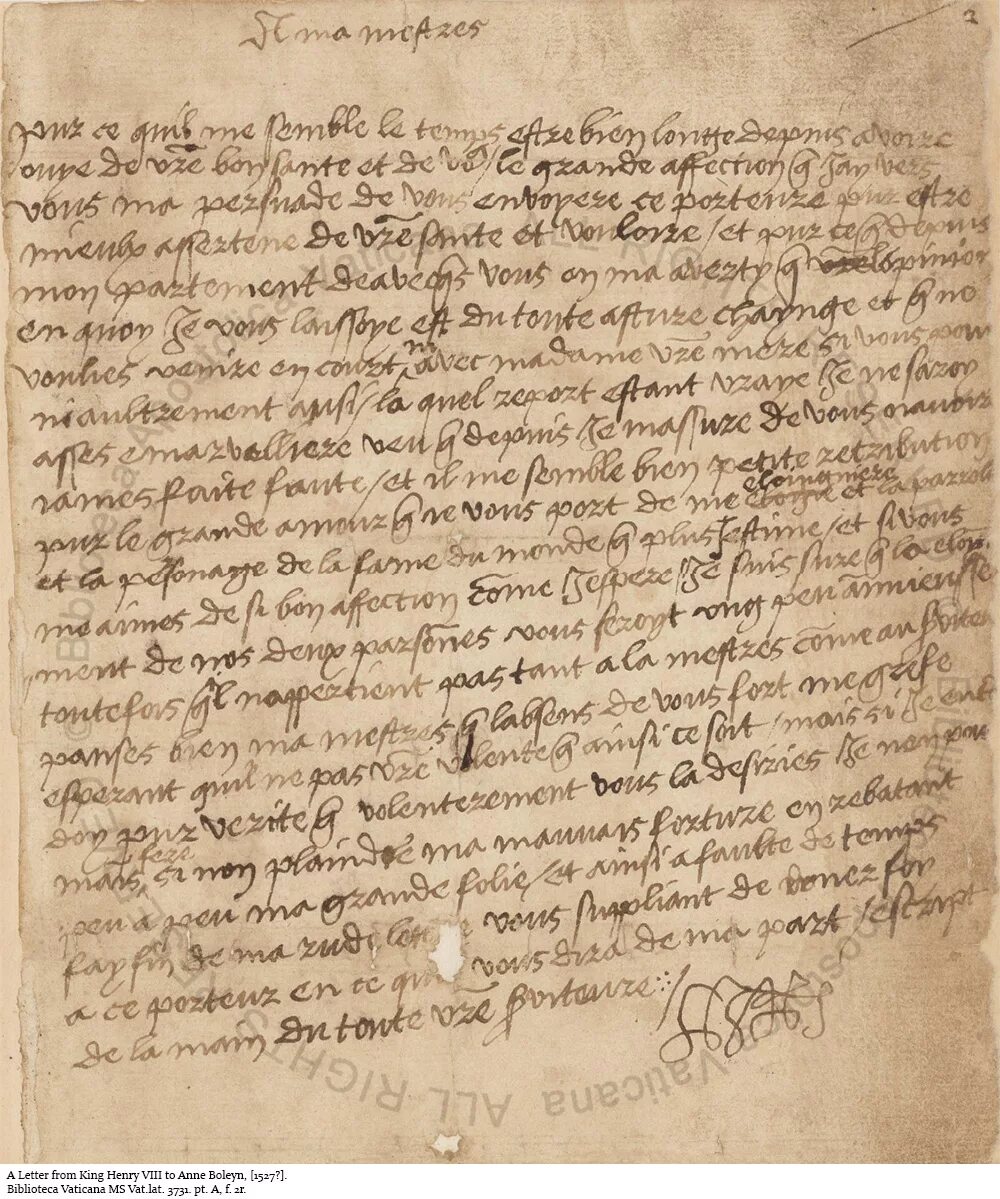 A ma mestres
2
pur ce quil me semble le temps estre bien longe depuis avoire
ouye de vre bon sante et de vo9 / le grande affection q Jay vers
vous ma persuade de vous envoyere ce porteure pur estre
mieulx assertene de vre sante et vouloire / et pur ce q depuis
mon partement de aveqs vous on ma averty q lopinion
en quoy Je vous laissoye est du toute asture chaynge et q ne
voulies venire en court ni avec madame vre mere si vous pou
ni aultrement ausi / la quel report estant vraye Je ne saroy
asses emarvalliere veu q depuis Je massure de vous navoire
iames faite faute / et il me semble bien petite retribution
pur le grande amour q ie vous port de me eloingniere et la parrole
et la personage de la fame du monde q plus Jestime / et si vous
me aimes de si bon affection come Jespere Je suis sure q la eloin
ment de nos deux parsones vous seroyt ung peu annieusse
toutefois ql nappertient pas tant a la mestres come au serviteur
panses bien ma mestres q labsens de vous fort me grefe
esperant quil ne pas vre volente q ainsi ce soit / mais si Je ent
doy pur verite q volenterement vous la desiries Je nen pui
mais si non plaindre ma mauvais fortune en rebatant
peu a peu ma grande folie / et ainsi a faulte de temps
fay fin de ma rude lettre vous suppliant de doner foy
a ce porteur en ce qui vous dira de ma part / escript
de la main du toute vre serviteure
Biblioteca Apostolica Vaticana ALL RIGHTS
A Letter from King Henry VIII to Anne Boleyn, [1527?].
Biblioteca Vaticana MS Vat.lat. 3731. pt. A, f. 2r.